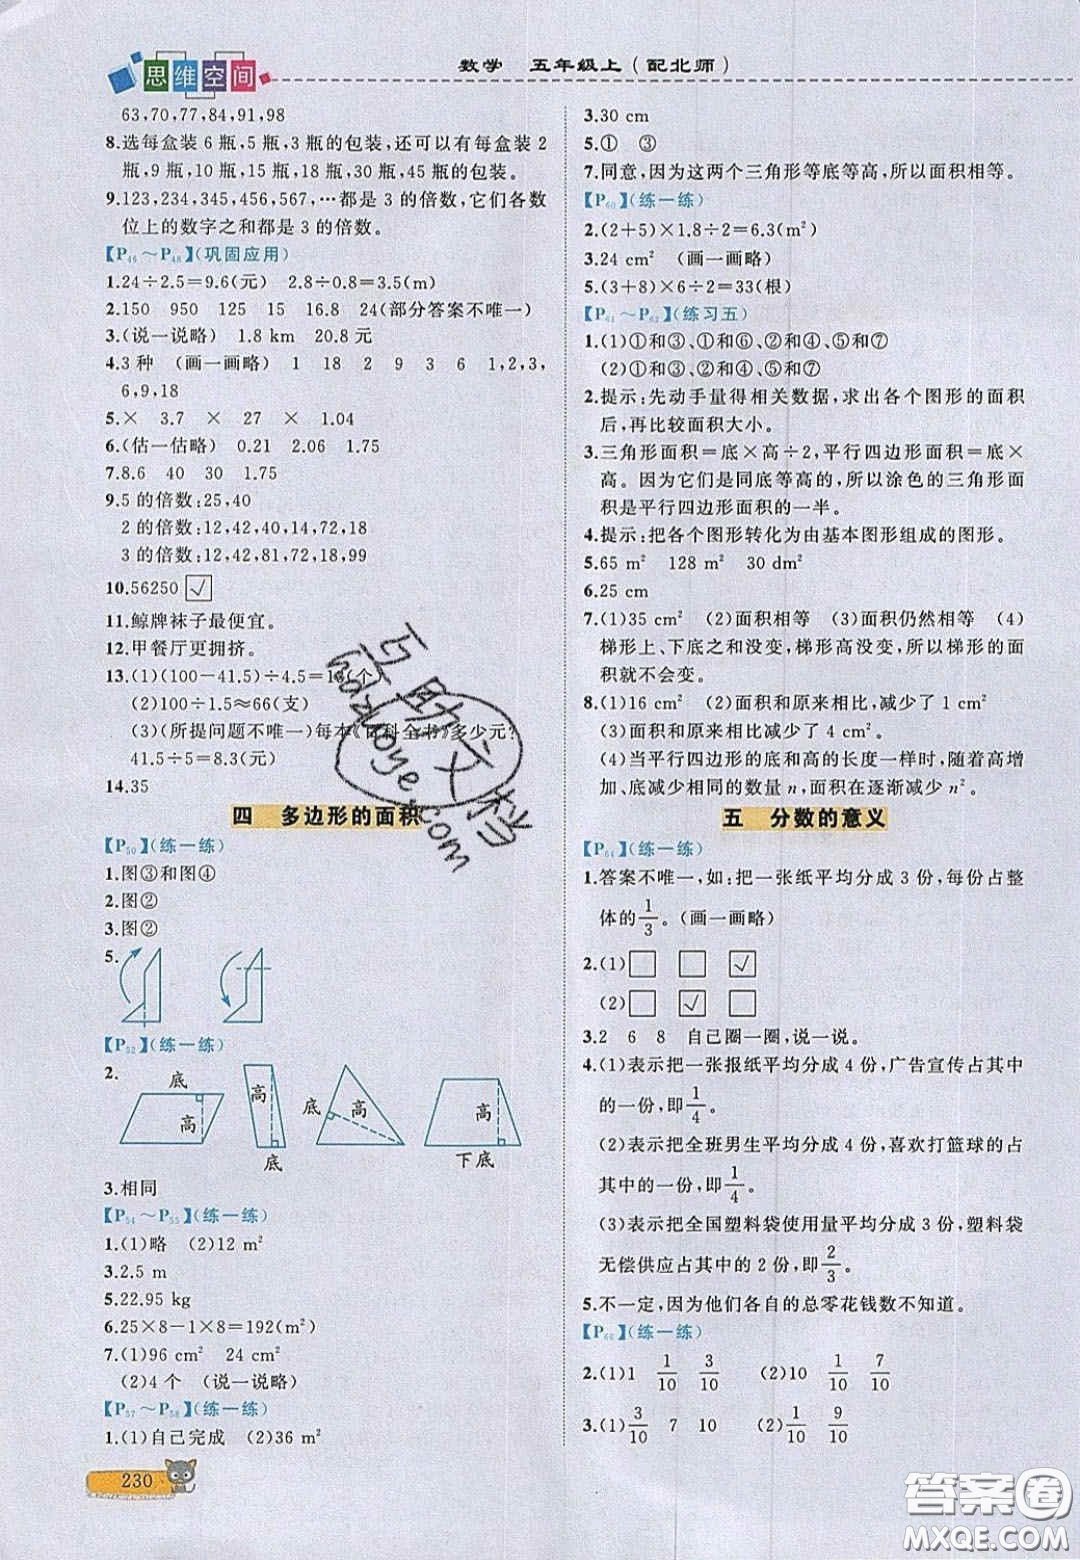 思维空间
数学 五年级上(配北师)
63,70,77,84,91,98
8.选每盒装 6 瓶,5 瓶,3 瓶的包装,还可以有每盒装 2
瓶,9 瓶,10 瓶,15 瓶,18 瓶,30 瓶,45 瓶的包装。
9.123,234,345,456,567,…都是 3 的倍数,它们各数
位上的数字之和都是 3 的倍数。
【P46～P48】(巩固应用)
1.24÷2.5=9.6(元) 2.8÷0.8=3.5(m)
2.150 950 125 15 16.8 24(部分答案不唯一)
3.(说一说略) 1.8 km 20.8 元
4.3 种 (画一画略) 1 18 2 9 3 6 1,2,3,
6,9,18
5.× 3.7 × 27 × 1.04
6.(估一估略) 0.21 2.06 1.75
7.8.6 40 30 1.75
9.5 的倍数:25,40
2 的倍数:12,42,40,14,72,18
3 的倍数:12,42,81,72,18,99
10.56250 ✓
11.鲸牌袜子最便宜。
12.甲餐厅更拥挤。
13.(1)(100-41.5)÷4.5=13(个)
(2)100÷1.5≈66(支)
(3)(所提问题不唯一)每本《百科全书》多少元?
41.5÷5=8.3(元)
14.35
四 多边形的面积
【P50】(练一练)
1.图③和图④
2.图②
3.图②
5.
【P52】(练一练)
2.
底 高 高 底 底 高 高 下底
3.相同
【P54～P55】(练一练)
1.(1)略 (2)12 m²
3.2.5 m
5.22.95 kg
6.25×8-1×8=192(m²)
7.(1)96 cm² 24 cm²
(2)4 个 (说一说略)
【P57～P58】(练一练)
1.(1)自己完成 (2)36 m²
230
3.30 cm
5.① ③
7.同意,因为这两个三角形等底等高,所以面积相等。
【P60】(练一练)
2.(2+5)×1.8÷2=6.3(m²)
3.24 cm² (画一画略)
5.(3+8)×6÷2=33(根)
【P61～P62】(练习五)
1.(1)①和③、①和⑥、②和④、⑤和⑦
(2)①和③、②和④、⑤和⑦
2.提示:先动手量得相关数据,求出各个图形的面积
后,再比较面积大小。
3.三角形面积=底×高÷2,平行四边形面积=底×
高。因为它们是同底等高的,所以涂色的三角形面
积是平行四边形面积的一半。
4.提示:把各个图形转化为由基本图形组成的图形。
5.65 m² 128 m² 30 dm²
6.25 cm
7.(1)35 cm² (2)面积相等 (3)面积仍然相等 (4)
梯形上、下底之和没变,梯形高没变,所以梯形的面
积就不会变。
8.(1)16 cm² (2)面积和原来相比,减少了 1 cm²
(3)面积和原来相比减少了 4 cm²。
(4)当平行四边形的底和高的长度一样时,随着高增
加,底减少相同的数量 n,面积在逐渐减少 n²。
五 分数的意义
【P64】(练一练)
1.答案不唯一,如:把一张纸平均分成 3 份,每份占整
体的1/3。(画一画略)
2.(1)□ □ ✓
(2)□ ✓ □
3.2 6 8 自己圈一圈,说一说。
4.(1)表示把一张报纸平均分成 4 份,广告宣传占其中
的一份,即1/4。
(2)表示把全班男生平均分成 4 份,喜欢打篮球的占
其中的一份,即1/4。
(3)表示把全国塑料袋使用量平均分成 3 份,塑料袋
无偿供应占其中的 2 份,即2/3。
5.不一定,因为他们各自的总零花钱数不知道。
【P66】(练一练)
2.(1)1 1/10 3/10 (2)10 1/10 7/10
3.(1)3/10 7 10 (2)1/10 9/10
互助文档
hdzuoye.com
答案圈
MXQE.COM